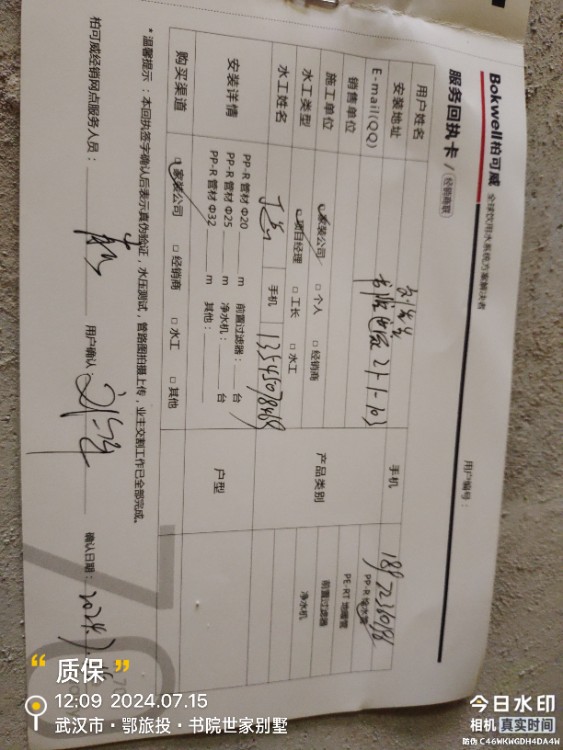 Bokwell柏可威 全球饮用水系统方案解决者
服务回执卡 / 经销商联
用户编号:
用户姓名
手机
安装地址 21-1-103
E-mail(QQ)
产品类别
PP-R 给水管
PE-RT 地暖管
前置过滤器
净水机
销售单位
施工单位 家装公司 □ 个人 □ 经销商
水工类型 项目经理 □ 工长 □ 水工
水工姓名 手机 13545078469
安装详情
PP-R 管材 Φ20 m 前置过滤器: 台
PP-R 管材 Φ25 m 净水机: 台
PP-R 管材 Φ32 m 其他:
户型
购买渠道 家装公司 □ 经销商 □ 水工 □ 其他
*温馨提示:本回执签字确认后表示真伪验证,水压测试,管路图拍摄上传,业主交割工作已全部完成。
柏可威经销网点服务人员: 用户确认: 确认日期: 2024.7.
“ 质保 ”
12:09 2024.07.15
武汉市·鄂旅投·书院世家别墅
今日水印
相机 真实时间
防伪 C46WKWGDH4DA4W